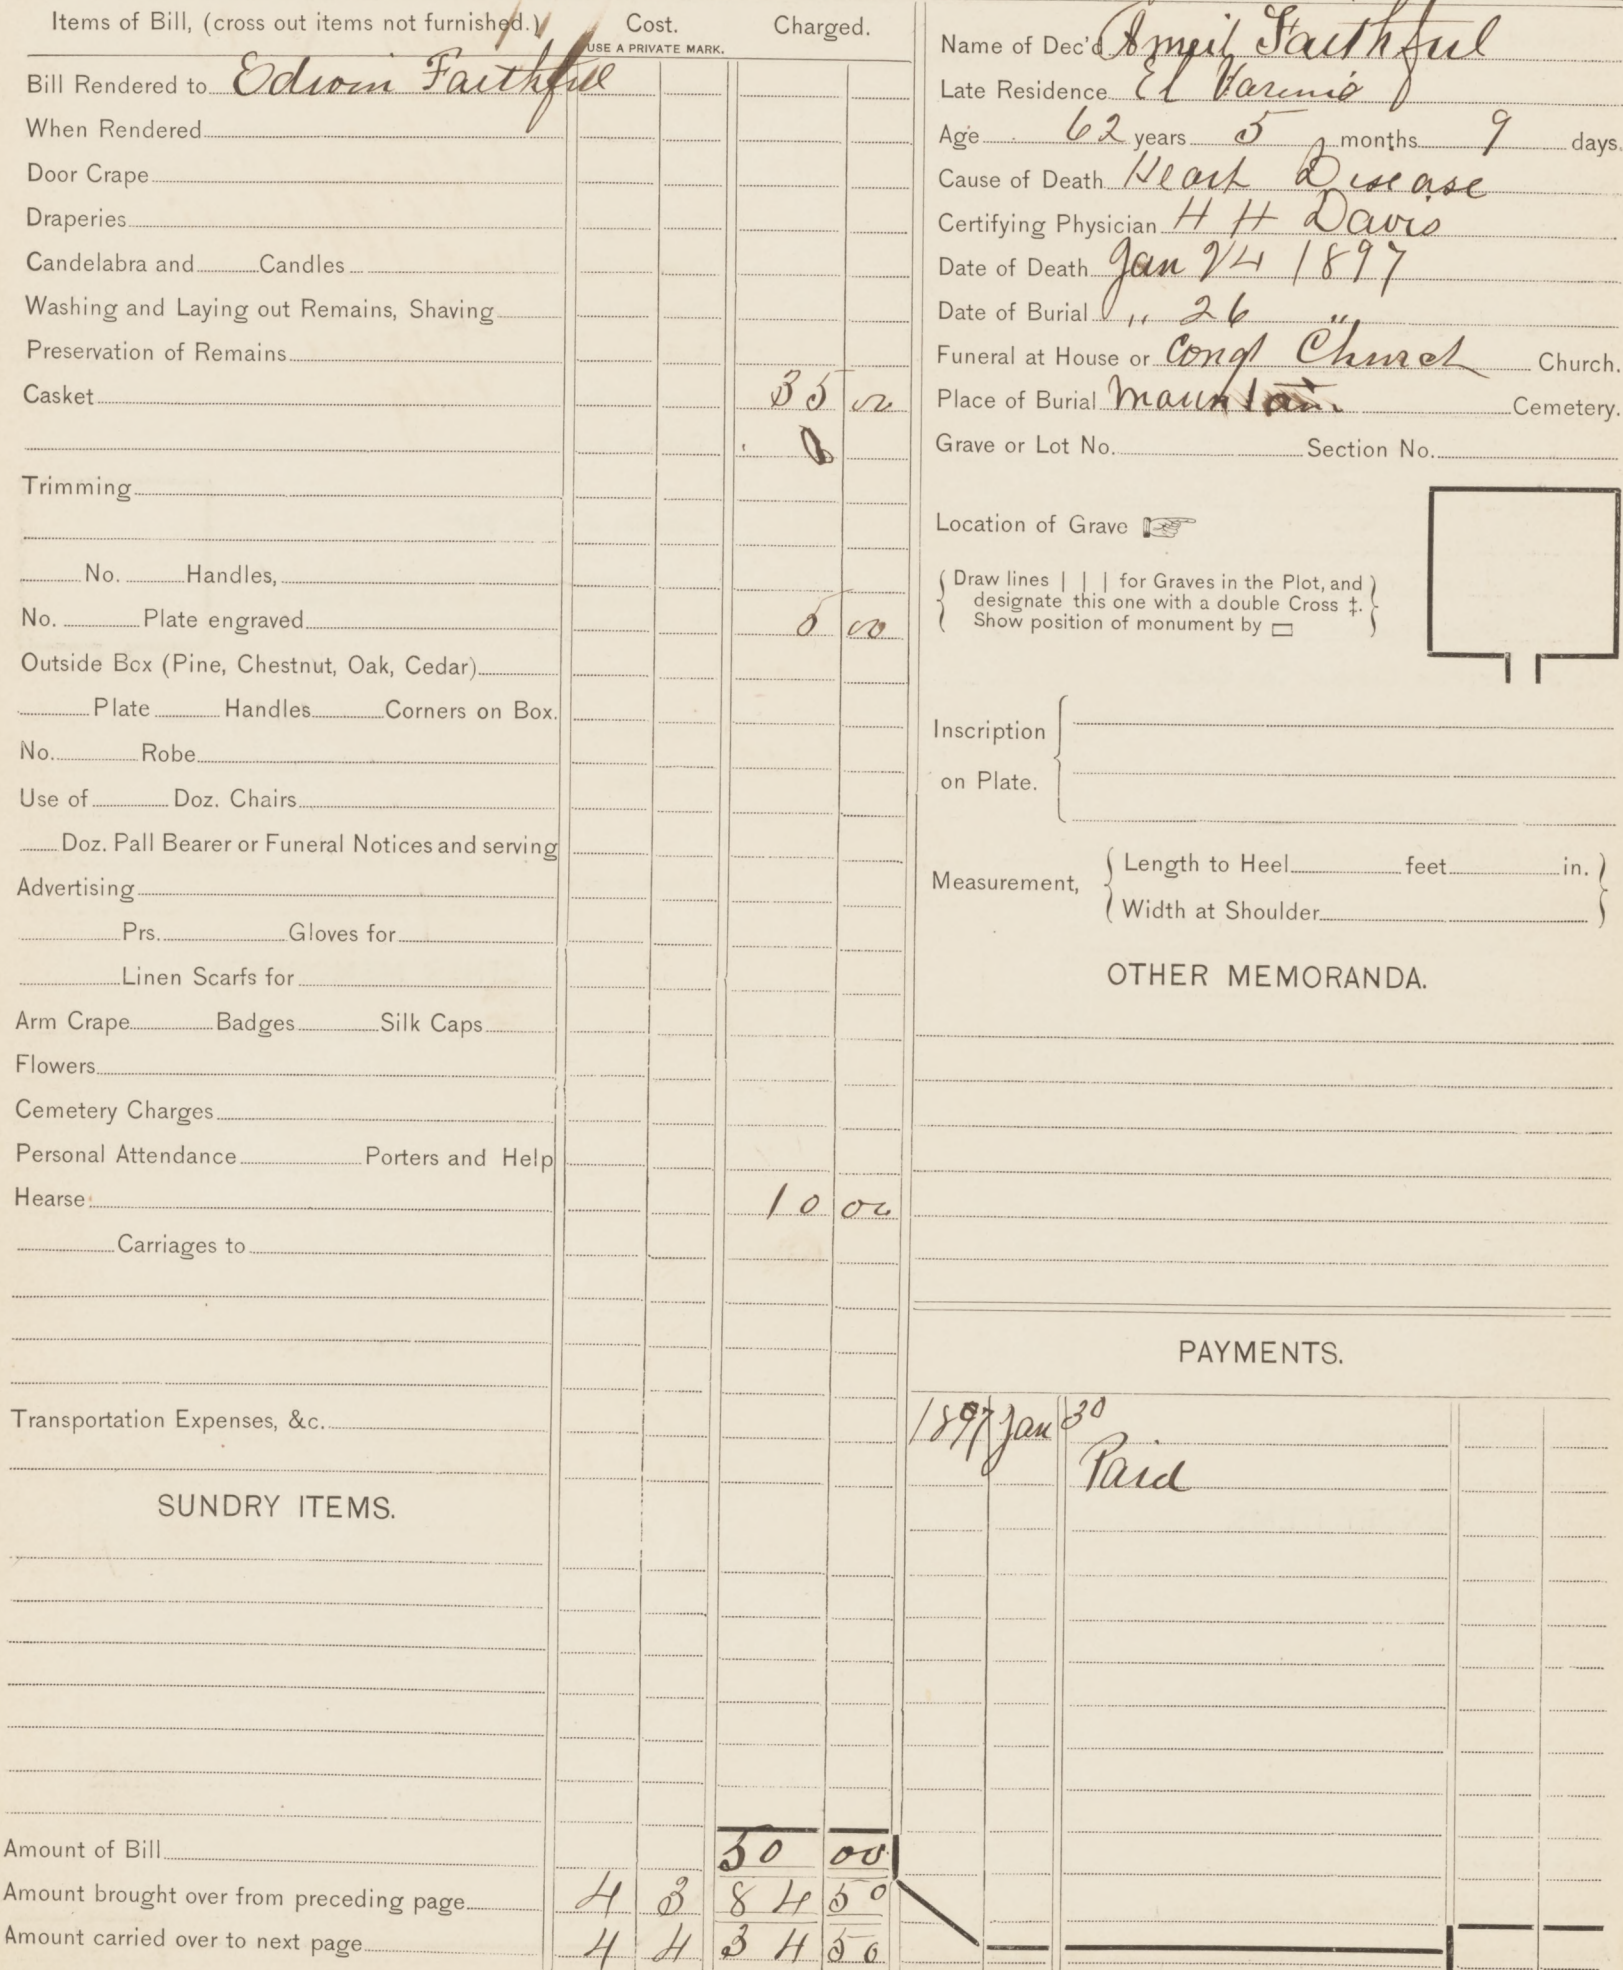 Items of Bill, (cross out items not furnished.) Cost. Charged.
USE A PRIVATE MARK.
Bill Rendered to Edwin Faithful
When Rendered
Door Crape
Draperies
Candelabra and Candles
Washing and Laying out Remains, Shaving
Preservation of Remains
Casket 35 00
Trimming
No. Handles,
No. Plate engraved 5 00
Outside Box (Pine, Chestnut, Oak, Cedar)
Plate Handles Corners on Box.
No. Robe
Use of Doz. Chairs
Doz. Pall Bearer or Funeral Notices and serving
Advertising
Prs. Gloves for
Linen Scarfs for
Arm Crape Badges Silk Caps
Flowers
Cemetery Charges
Personal Attendance Porters and Help
Hearse 10 00
Carriages to
Transportation Expenses, &c.
SUNDRY ITEMS.
Amount of Bill 50 00
Amount brought over from preceding page 4 3 8 4 50
Amount carried over to next page 4 4 3 4 50
Name of Dec'd Ameil Faithful
Late Residence El
Age 62 years 5 months 9 days.
Cause of Death Heart Disease
Certifying Physician H H Davis
Date of Death Jan 24 1897
Date of Burial " 26 "
Funeral at House or Congl Church Church.
Place of Burial Mountain Cemetery.
Grave or Lot No. Section No.
Location of Grave
Draw lines | | | for Graves in the Plot, and
designate this one with a double Cross ‡.
Show position of monument by
Inscription
on Plate.
Measurement,
Length to Heel feet in.
Width at Shoulder
OTHER MEMORANDA.
PAYMENTS.
1897 Jan 30
Paid